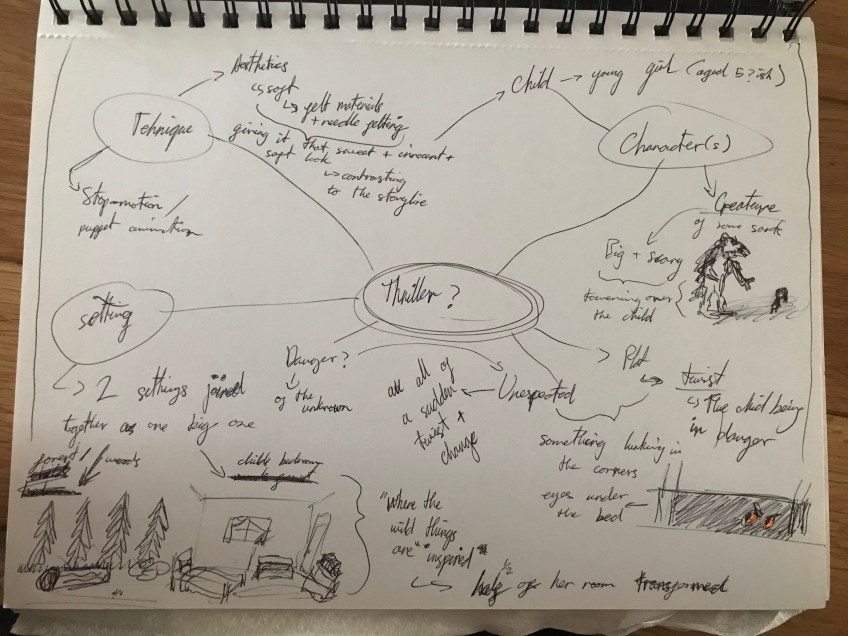 Tehnique
Aesthetics
soft
felt materials
+ needle felting
giving it that sweet + innocent +
soft look
contrasting
to the storyline
Stop-motion /
puppet animation
Child → young girl (aged 5?ish)
Character(s)
Creature
of some sort
Big + scary
towering over
the child
Thriller?
setting
2 settings joined
together as one big one
forest/
woods
childs bedroom
Danger?
of the
unknown
Unexpected
all of
a sudden
twist +
change
Plot
twist
The child being
in danger
something lurking in
the corners
eyes under
the bed
"Where the
wild things
are" inspired"
half 1/2 of her room transformed